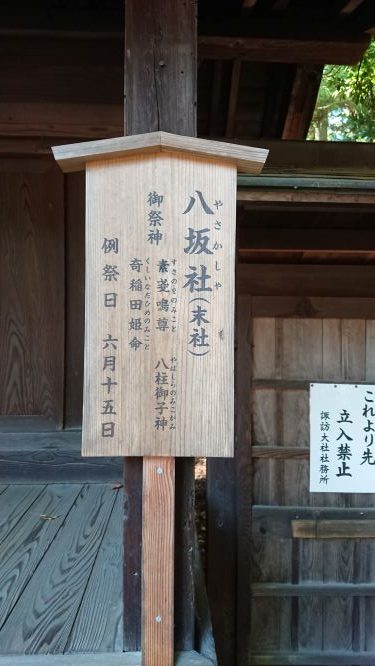 八坂社(末社)
やさかしゃ
御祭神
素戔嗚尊
すさのおのみこと
八柱御子神
やはしらのみこがみ
奇稲田姫命
くしいなだひめのみこと
例祭日 六月十五日
これより先
立入禁止
諏訪大社社務所